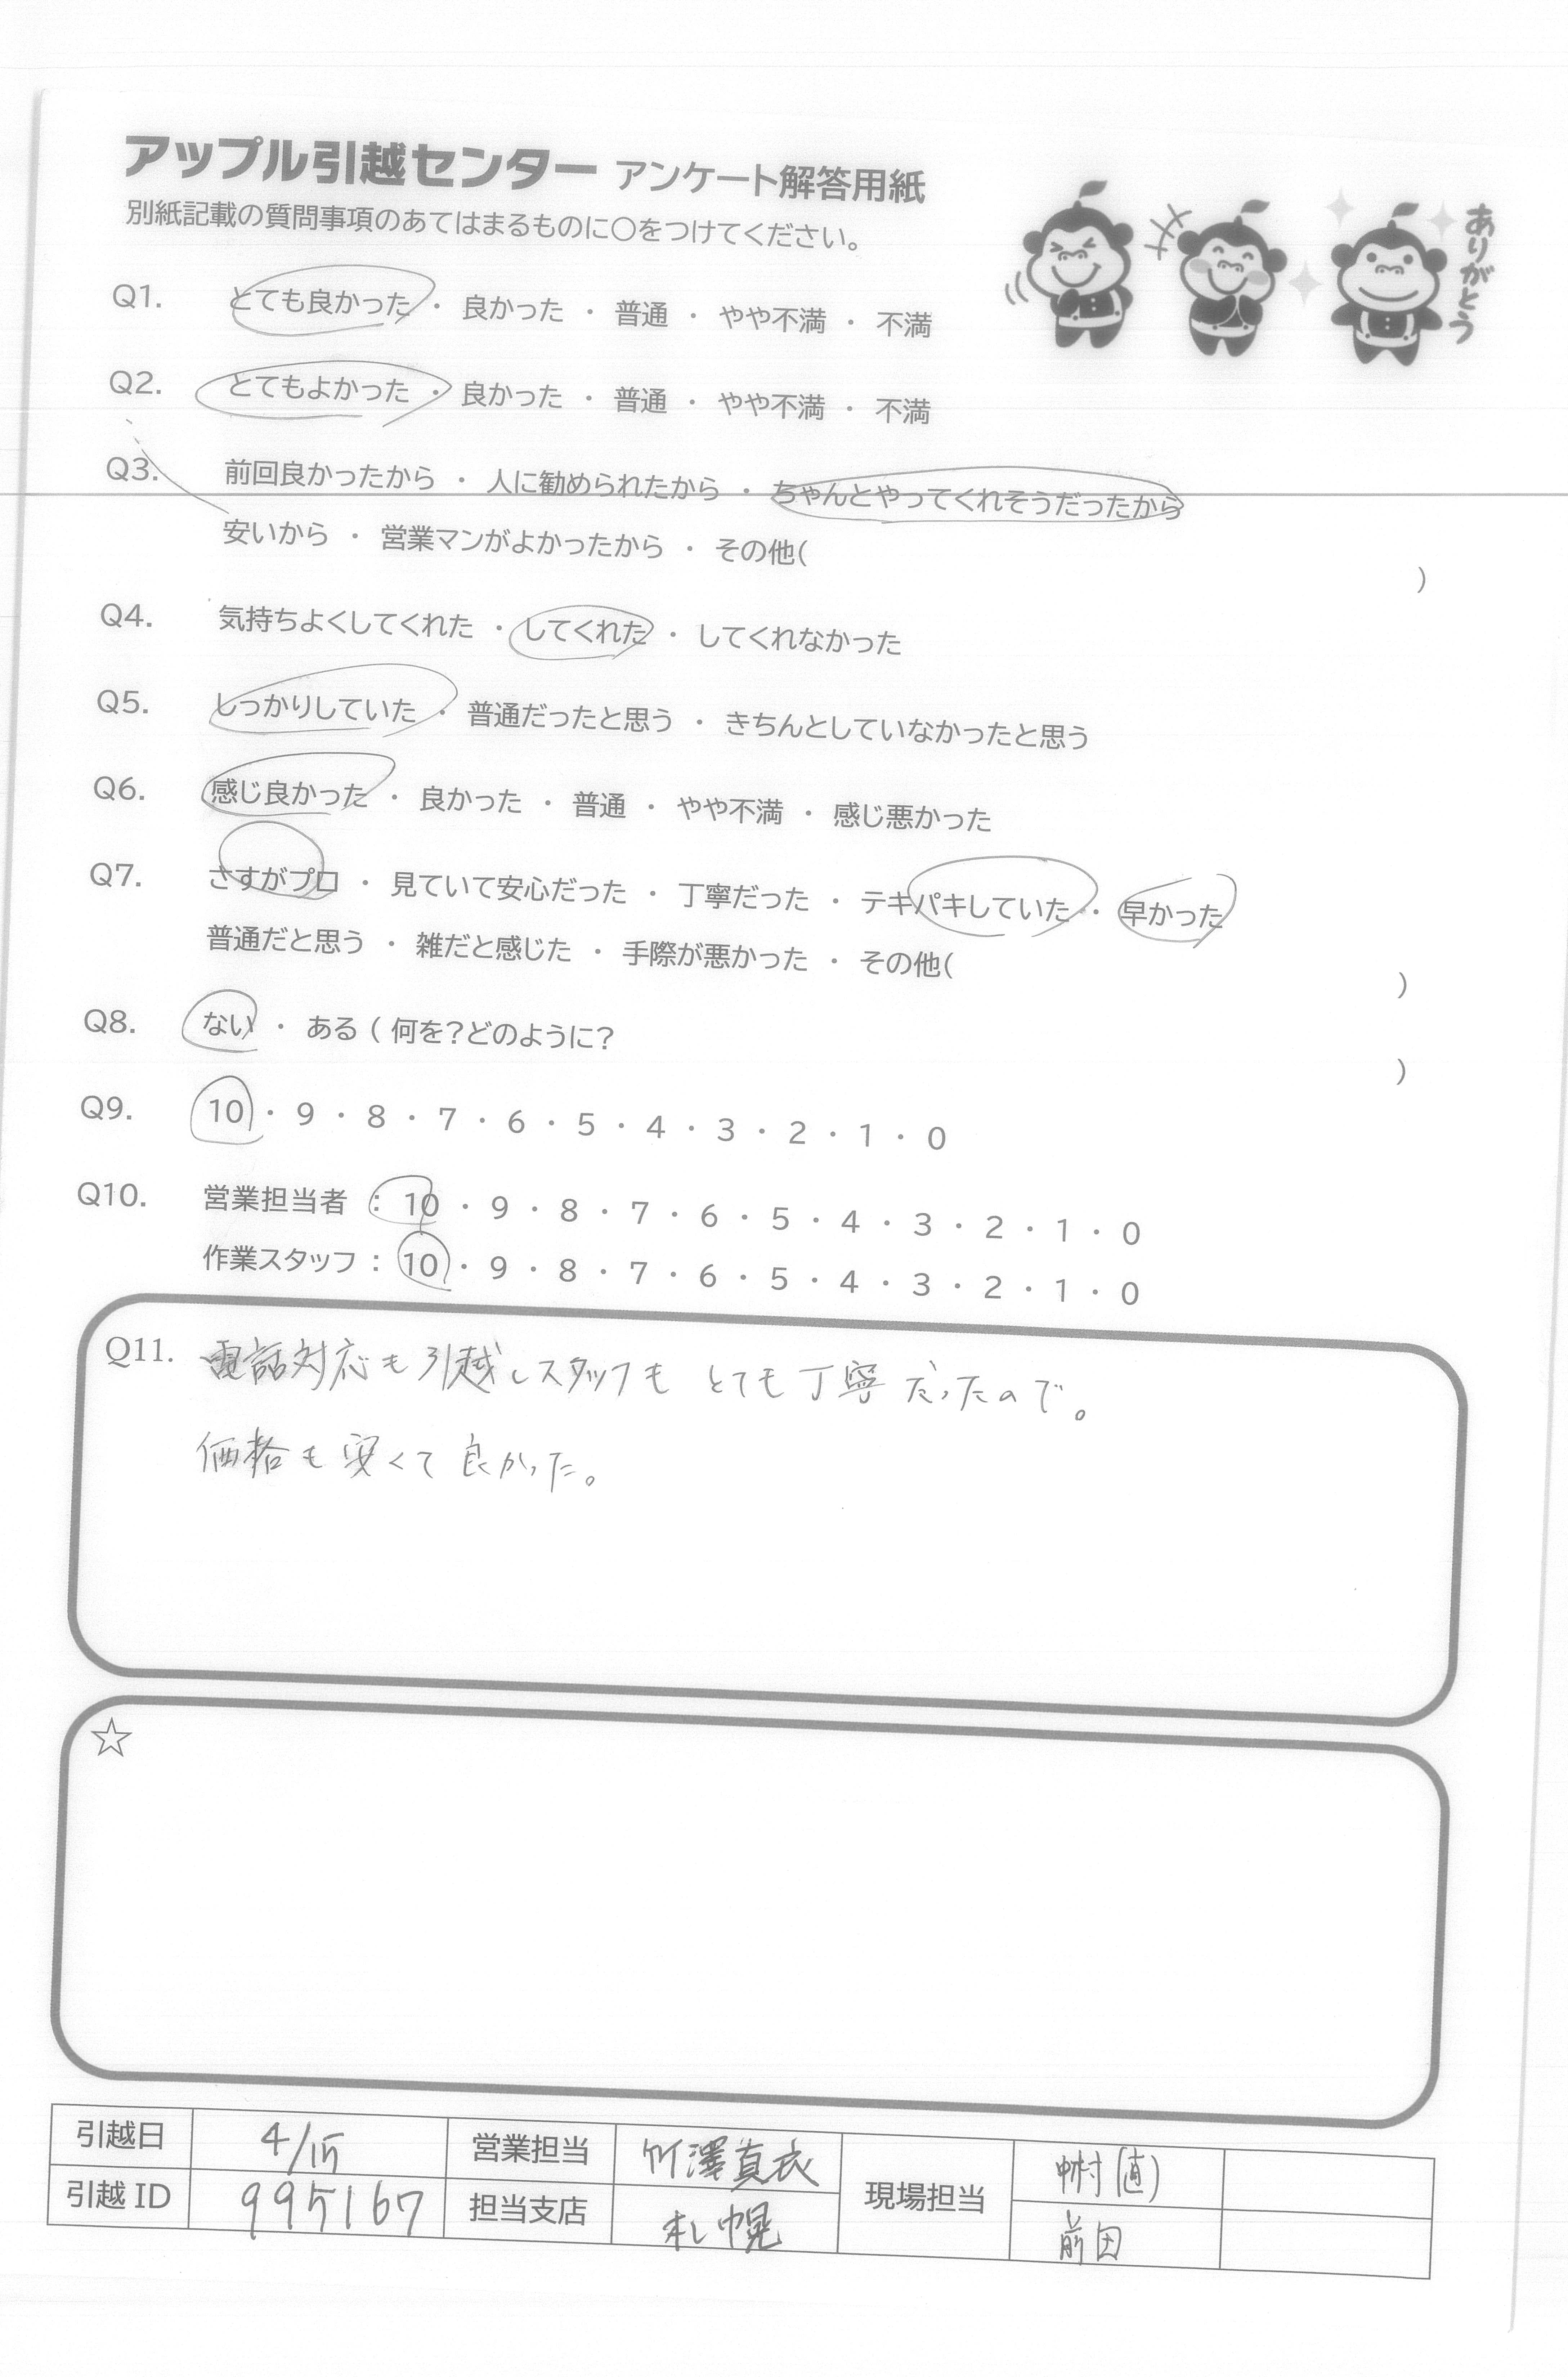 アップル引越センター アンケート解答用紙
別紙記載の質問事項のあてはまるものに○をつけてください。
ありがとう
Q1. とても良かった ・ 良かった ・ 普通 ・ やや不満 ・ 不満
Q2. とてもよかった ・ 良かった ・ 普通 ・ やや不満 ・ 不満
Q3. 前回良かったから ・ 人に勧められたから ・ ちゃんとやってくれそうだったから
安いから ・ 営業マンがよかったから ・ その他( )
Q4. 気持ちよくしてくれた ・ してくれた ・ してくれなかった
Q5. しっかりしていた ・ 普通だったと思う ・ きちんとしていなかったと思う
Q6. 感じ良かった ・ 良かった ・ 普通 ・ やや不満 ・ 感じ悪かった
Q7. さすがプロ ・ 見ていて安心だった ・ 丁寧だった ・ テキパキしていた ・ 早かった
普通だと思う ・ 雑だと感じた ・ 手際が悪かった ・ その他( )
Q8. ない ・ ある ( 何を?どのように? )
Q9. 10 ・ 9 ・ 8 ・ 7 ・ 6 ・ 5 ・ 4 ・ 3 ・ 2 ・ 1 ・ 0
Q10. 営業担当者 : 10 ・ 9 ・ 8 ・ 7 ・ 6 ・ 5 ・ 4 ・ 3 ・ 2 ・ 1 ・ 0
作業スタッフ : 10 ・ 9 ・ 8 ・ 7 ・ 6 ・ 5 ・ 4 ・ 3 ・ 2 ・ 1 ・ 0
Q11. 電話対応も引越しスタッフも とても丁寧だったので。
価格も安くて良かった。
☆
引越日 4/15 営業担当 竹澤真衣 現場担当 中村(直)
引越ID 995167 担当支店 札幌 前田